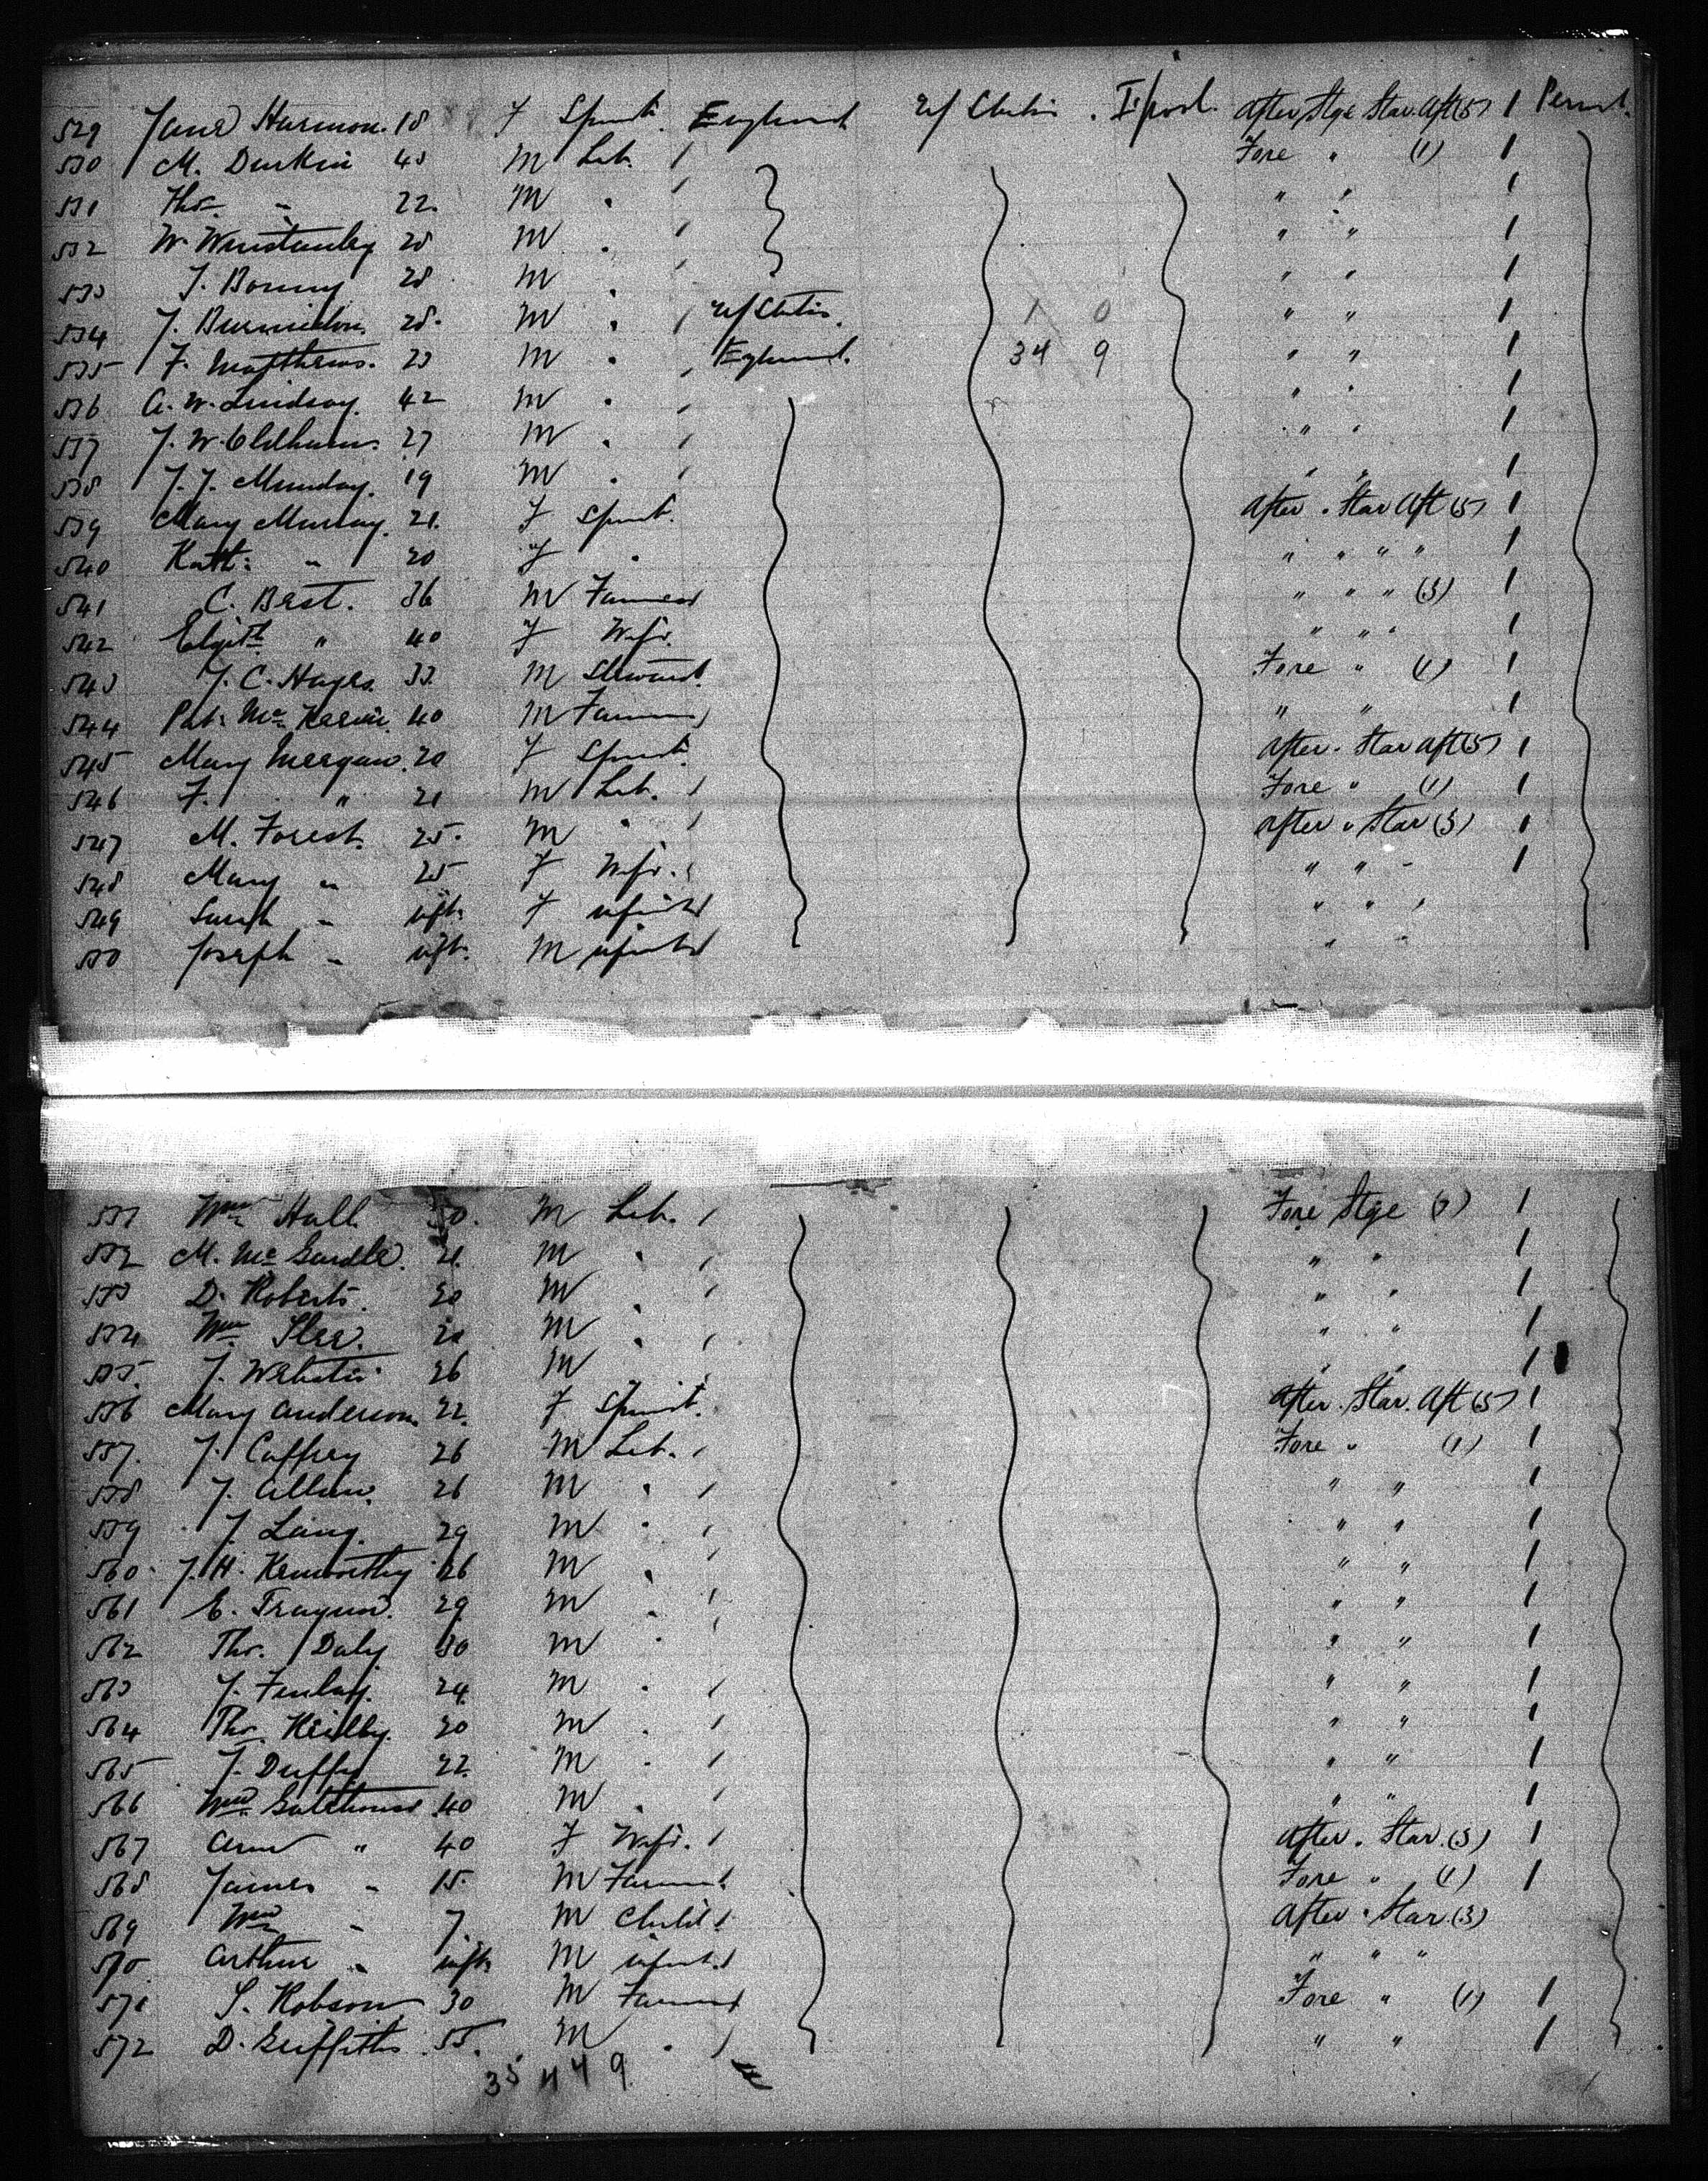 529 Jane Harmon 18 F Spinst. England U/States L'pool. After Stge Star. Aft (5) 1 Permt.
530 M. Durkin 45 M Lab. " Fore " (1) 1
531 Thos. " 22. M " " " " 1
532 W. Winstanley 28 M " " " " 1
533 J. Bonny 28 M " " " " 1
534 J. 28. M " " U/States 1 0 " " 1
535 F. Matthews. 23 M " " England. 34 9 " " 1
536 A. W. Lindsay. 42 M " " " " 1
537 J. W. Oldham. 27 M " " " " 1
538 J. J. Munday. 19 M " " " " 1
539 Mary Murray. 21. F Spinst. After " Star Aft (5) 1
540 Kath: " 20 F " " " " " 1
541 C. Best. 36 M Farmer " " " (3) 1
542 " 40 F Wife. " " " 1
543 J. C. Hayes. 33. M Steward. Fore " (1) 1
544 Pat: Mc 40 M Farmer " " 1
545 Mary Meegan. 20 F Spinst. After " Star Aft (5) 1
546 F. " 21 M Lab. " Fore " (1) 1
547 M. Forest. 25. M " " After " Star (3) 1
548 Mary " 25 F Wife. " " " 1
549 Sarah " inft. F infant " " "
550 Joseph " inft. M infant " "
551 Wm Hall. M Lab. " Fore Stge (1) 1
552 M. Mc Gardle. 21. M " " " " 1
553 D. Roberts. 20 M " " " " 1
554 Wm Slee. 21 M " " " " 1
555. J. Webster 26 M " " " 1
556 Mary Anderson. 22. F Spinst. After " Star. Aft (5) 1
557. J. Caffrey 26 M Lab. " Fore " (1) 1
558 J. Allan. 26 M " " " " 1
559 J. Laing. 29 M " " " " 1
560 J. H. Kenworthy 26 M " " " " 1
561 E. 29 M " " " " 1
562 Thos. Daly. 30 M " " " " 1
563 J. Finlay. 24 M " " " " 1
564 Thos. Reilly. 20 M " " " " 1
565 J. Duffy 22. M " " " " 1
566 Wm Gatehouse. 40 M " " " " 1
567 Ann " 40 F Wife. " After " Star. (3) 1
568 James " 15. M Farmer. Fore " (1) 1
569 Wm " 7. M Child. After " Star. (3)
570. Arthur " inft. M infant. " " "
571 S. Robson 30 M Farmer Fore " (1) 1
572 D. Griffiths. 55. M " " " " 1